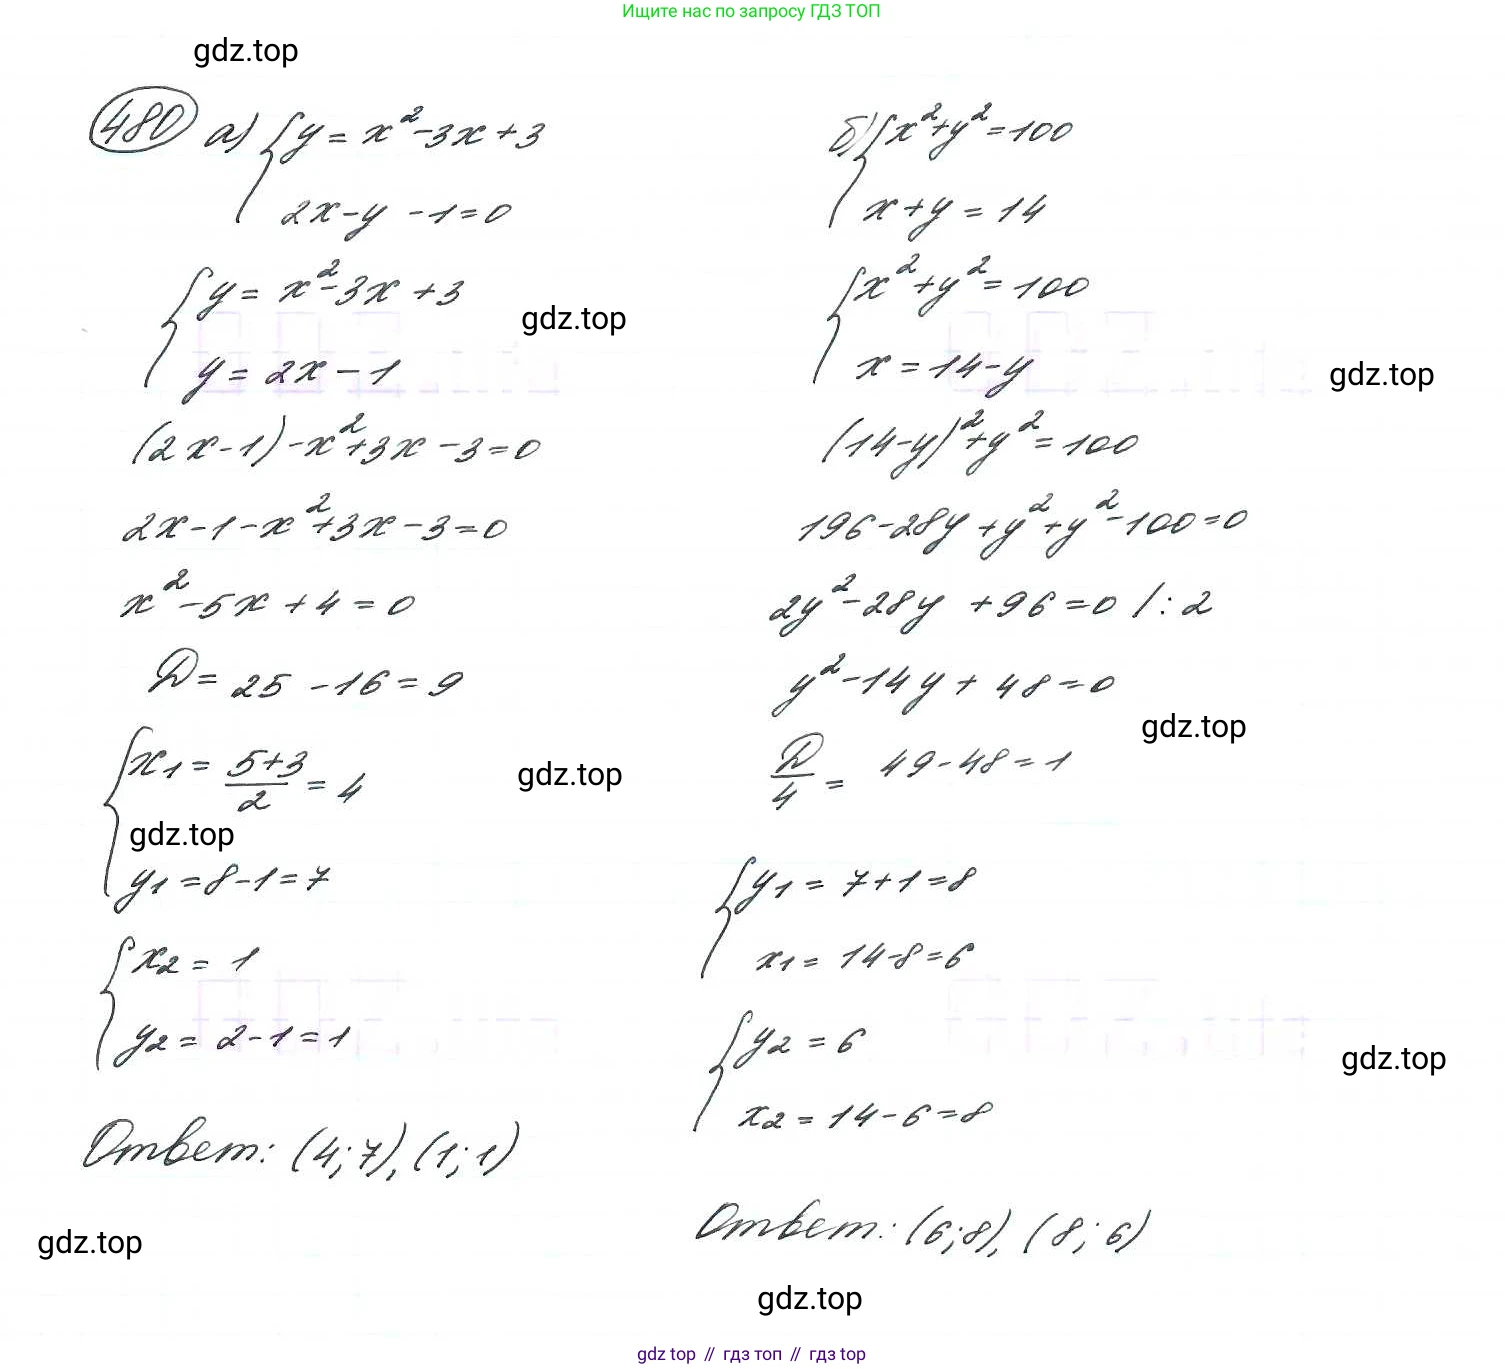 Ищите нас по запросу ГДЗ ТОП
gdz.top
480 а) { y = x² - 3x + 3
2x - y - 1 = 0
{ y = x² - 3x + 3
gdz.top
y = 2x - 1
(2x - 1) - x² + 3x - 3 = 0
2x - 1 - x² + 3x - 3 = 0
x² - 5x + 4 = 0
D = 25 - 16 = 9
{ x₁ = (5+3)/2 = 4
gdz.top
gdz.top
y₁ = 8 - 1 = 7
{ x₂ = 1
y₂ = 2 - 1 = 1
Ответ: (4; 7), (1; 1)
gdz.top
б) { x² + y² = 100
x + y = 14
{ x² + y² = 100
x = 14 - y
gdz.top
(14 - y)² + y² = 100
196 - 28y + y² + y² - 100 = 0
2y² - 28y + 96 = 0 /: 2
y² - 14y + 48 = 0
gdz.top
D/4 = 49 - 48 = 1
{ y₁ = 7 + 1 = 8
x₁ = 14 - 8 = 6
{ y₂ = 6
gdz.top
x₂ = 14 - 6 = 8
Ответ: (6; 8), (8; 6)
gdz.top
gdz top // гдз топ // гдз top